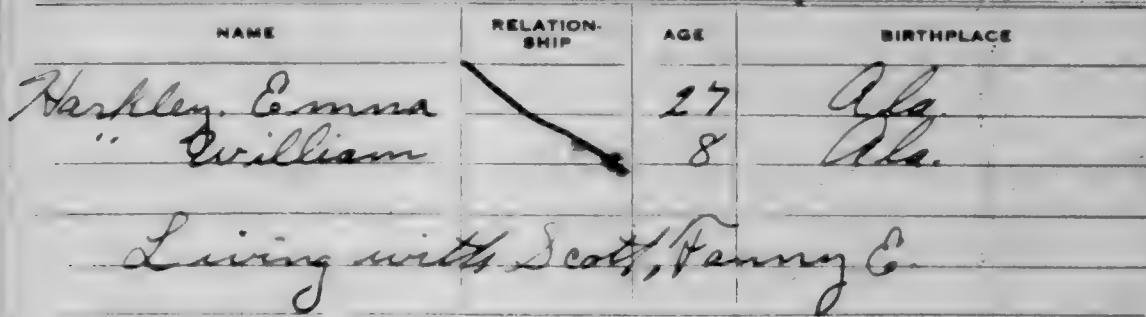 NAME RELATION-SHIP AGE BIRTHPLACE
Harkley, Emma 27 Ala.
" William 8 Ala.
Living with Scott, Fanny E.